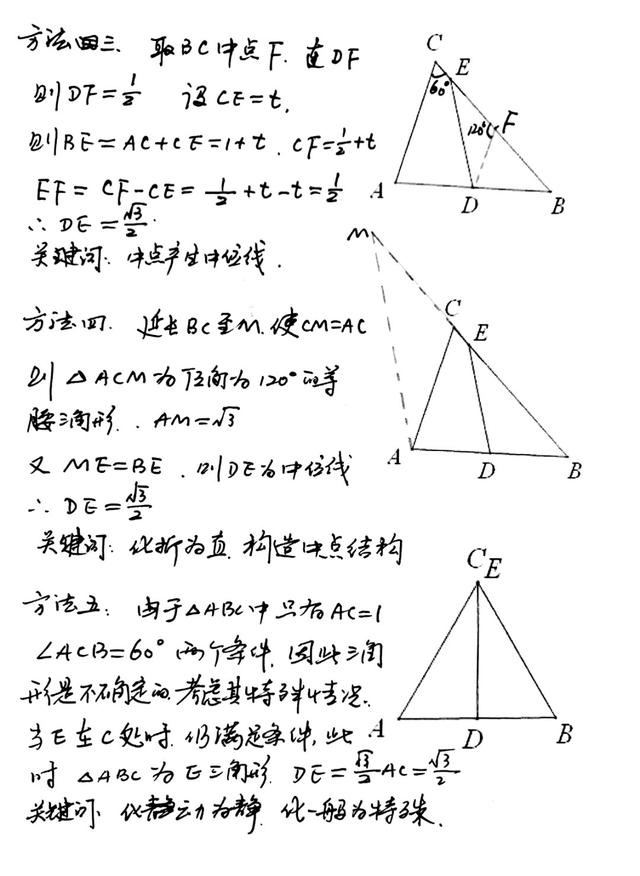 方法三. 取BC中点F. 连DF
则DF=1/2 设CE=t,
则BE=AC+CE=1+t. CF=1/2+t
EF=CF-CE=1/2+t-t=1/2
∴DE=√3/2.
关键词: 中点产生中位线.
C
E
60°
120°
F
A
D
B
方法四. 延长BC至M.使CM=AC
则△ACM为顶角为120°的等
腰三角形. AM=√3
又ME=BE.则DE为中位线
∴DE=√3/2
关键词: 化折为直.构造中点结构
M
C
E
A
D
B
方法五: 由于△ABC中只有AC=1
∠ACB=60°两个条件.因此三角
形是不确定的.考虑其特殊情况.
当E在C处时.仍满足条件,此
时△ABC为正三角形. DE=√3/2AC=√3/2
关键词: 化动为静.化一般为特殊.
C
E
A
D
B